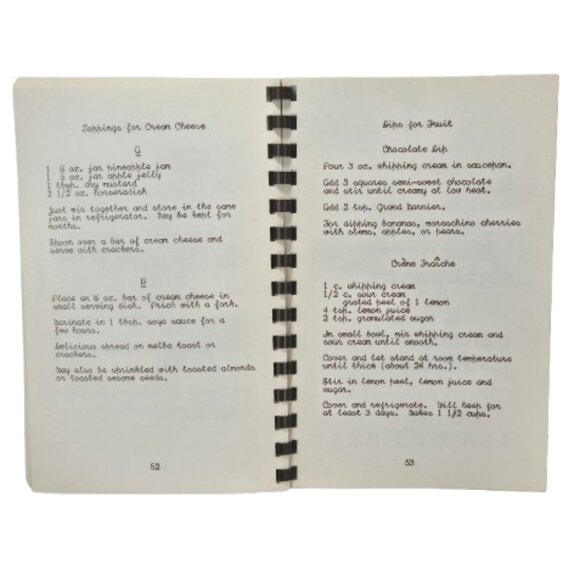 Toppings for Cream Cheese
A
1 8 oz. jar pineapple jam
1 8 oz. jar apple jelly
1 tbsp. dry mustard
2 1/2 oz. horseradish
Just mix together and store in the same
jars in refrigerator. May be kept for
months.
Spoon over a bar of cream cheese and
serve with crackers.
B
Place an 8 oz. bar of cream cheese in
small serving dish. Prick with a fork.
Marinate in 1 tbsp. soya sauce for a
few hours.
Delicious spread on melba toast or
crackers.
May also be sprinkled with toasted almonds
or toasted sesame seeds.
52
Dips for Fruit
Chocolate Dip
Pour 3 oz. whipping cream in saucepan.
Add 3 squares semi-sweet chocolate
and stir until creamy at low heat.
Add 2 tsp. Grand Marnier.
For dipping bananas, maraschino cherries
with stems, apples, or pears.
Crème Fraîche
1 c. whipping cream
1/2 c. sour cream
grated peel of 1 lemon
4 tsp. lemon juice
2 tsp. granulated sugar
In small bowl, mix whipping cream and
sour cream until smooth.
Cover and let stand at room temperature
until thick (about 24 hrs.).
Stir in lemon peel, lemon juice and
sugar.
Cover and refrigerate. Will keep for
at least 3 days. Makes 1 1/2 cups.
53